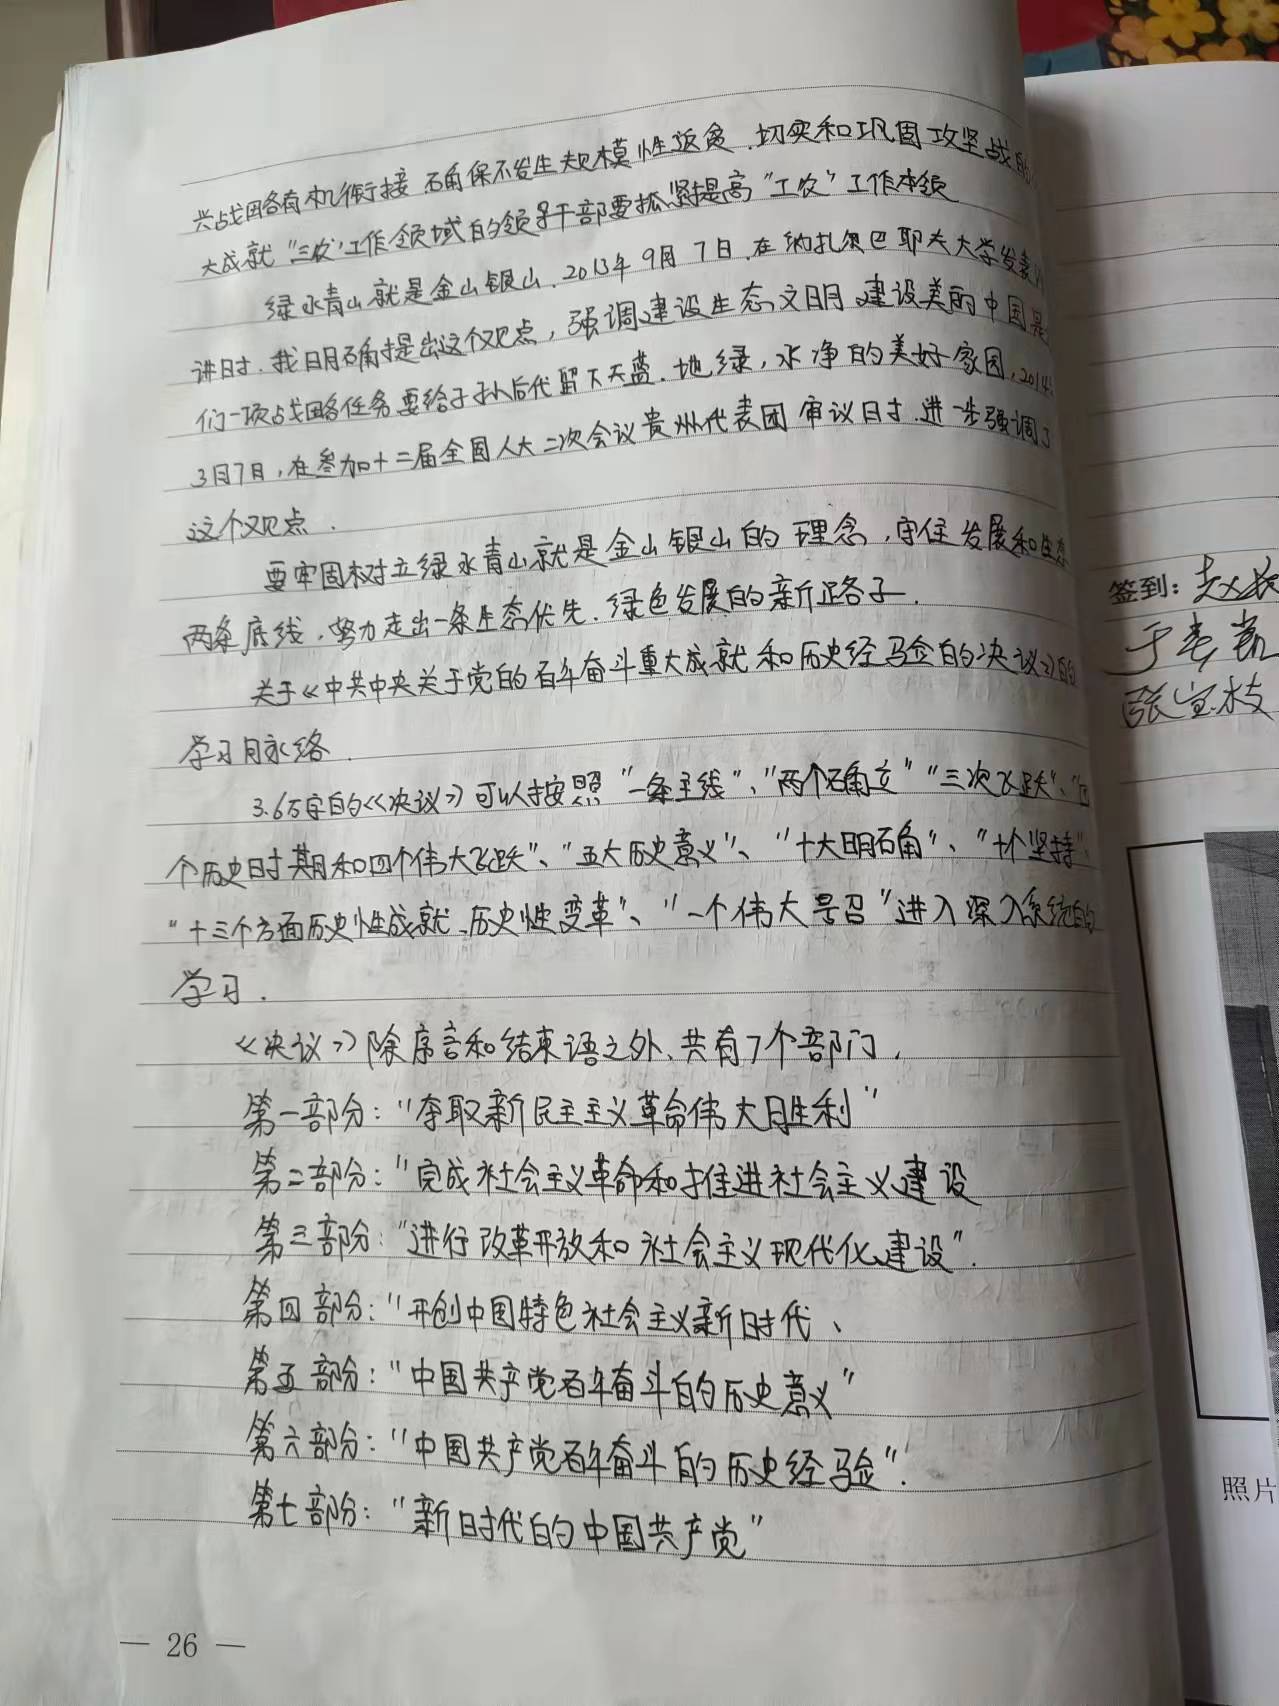 兴战略有机衔接 确保不发生规模性返贫、切实和巩固攻坚战的
大成就"三农"工作领域的领导干部要抓紧提高"工农"工作本领
绿水青山就是金山银山、2013年9月7日、在纳扎尔巴耶夫大学发表
讲时、我明确提出这个观点，强调建设生态文明、建设美丽中国是
们一项战略任务要给子孙后代留下天蓝、地绿，水净的美好家园，2014
3月7日，在参加十二届全国人大二次会议贵州代表团审议时、进一步强调了
这个观点．
要牢固树立绿水青山就是金山银山的理念，守住发展和生态
两条底线、努力走出一条生态优先、绿色发展的新路子．
关于《中共中央关于党的百年奋斗重大成就和历史经验的决议》的
学习脉络
3.6万字的《决议》可以按照"一条主线"、"两个确立""三次飞跃"、"四
个历史时期和四个伟大飞跃"、"五大历史意义"、"十大明确"、"十个坚持"、
"十三个方面历史性成就、历史性变革"、"一个伟大号召"进入深入系统的
学习．
《决议》除序言和结束语之外、共有7个部门．
第一部分："夺取新民主主义革命伟大胜利"
第二部分："完成社会主义革命和推进社会主义建设
第三部分："进行改革开放和社会主义现代化建设"．
第四部分："开创中国特色社会主义新时代、
第五部分："中国共产党百年奋斗的历史意义"
第六部分："中国共产党百年奋斗的历史经验"．
第七部分："新时代的中国共产党"
— 26 —
签到：
张宝枝
照片